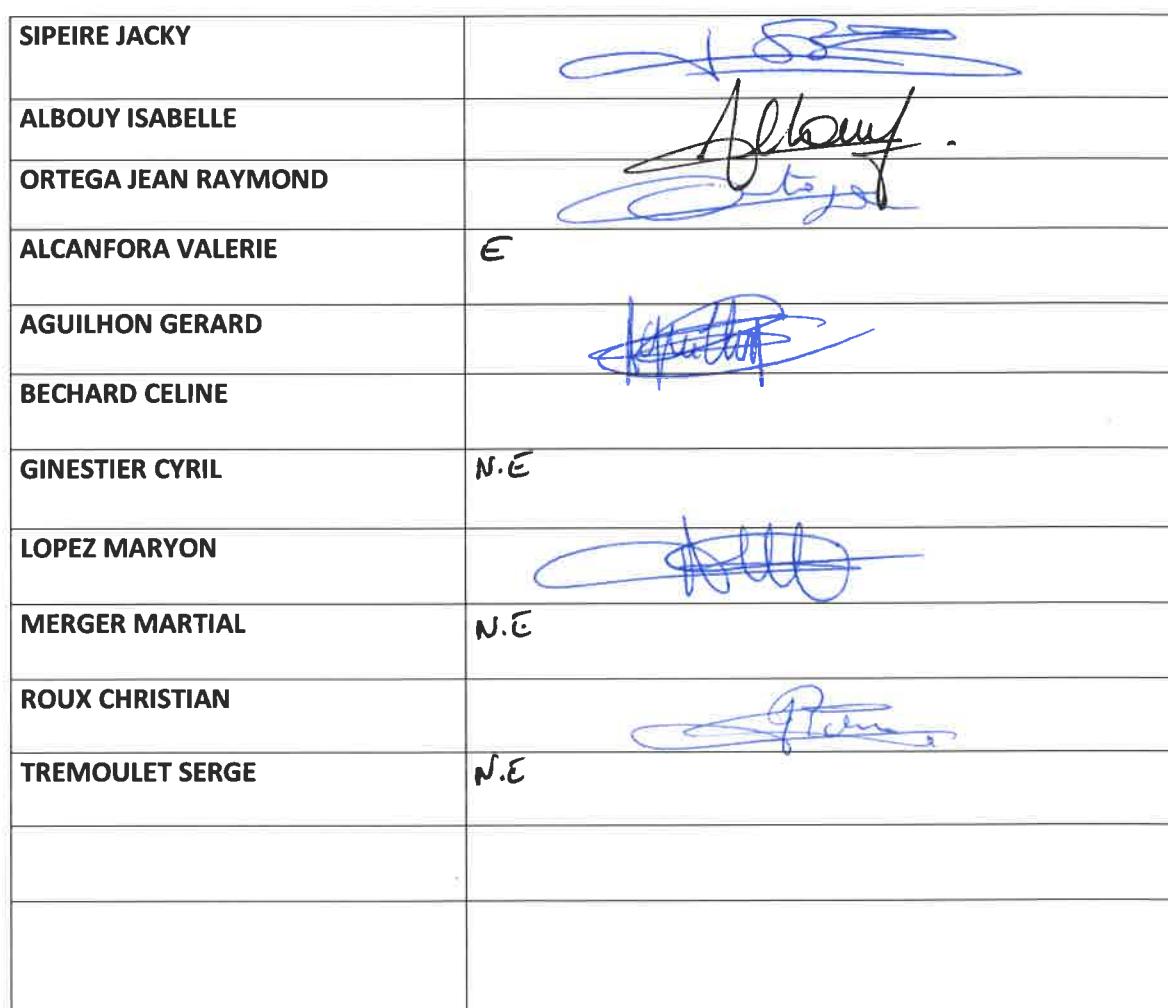 SIPEIRE JACKY
ALBOUY ISABELLE
Albouy.
ORTEGA JEAN RAYMOND
Ortega
ALCANFORA VALERIE E
AGUILHON GERARD
BECHARD CELINE
GINESTIER CYRIL N.E
LOPEZ MARYON
MERGER MARTIAL N.E
ROUX CHRISTIAN
TREMOULET SERGE N.E